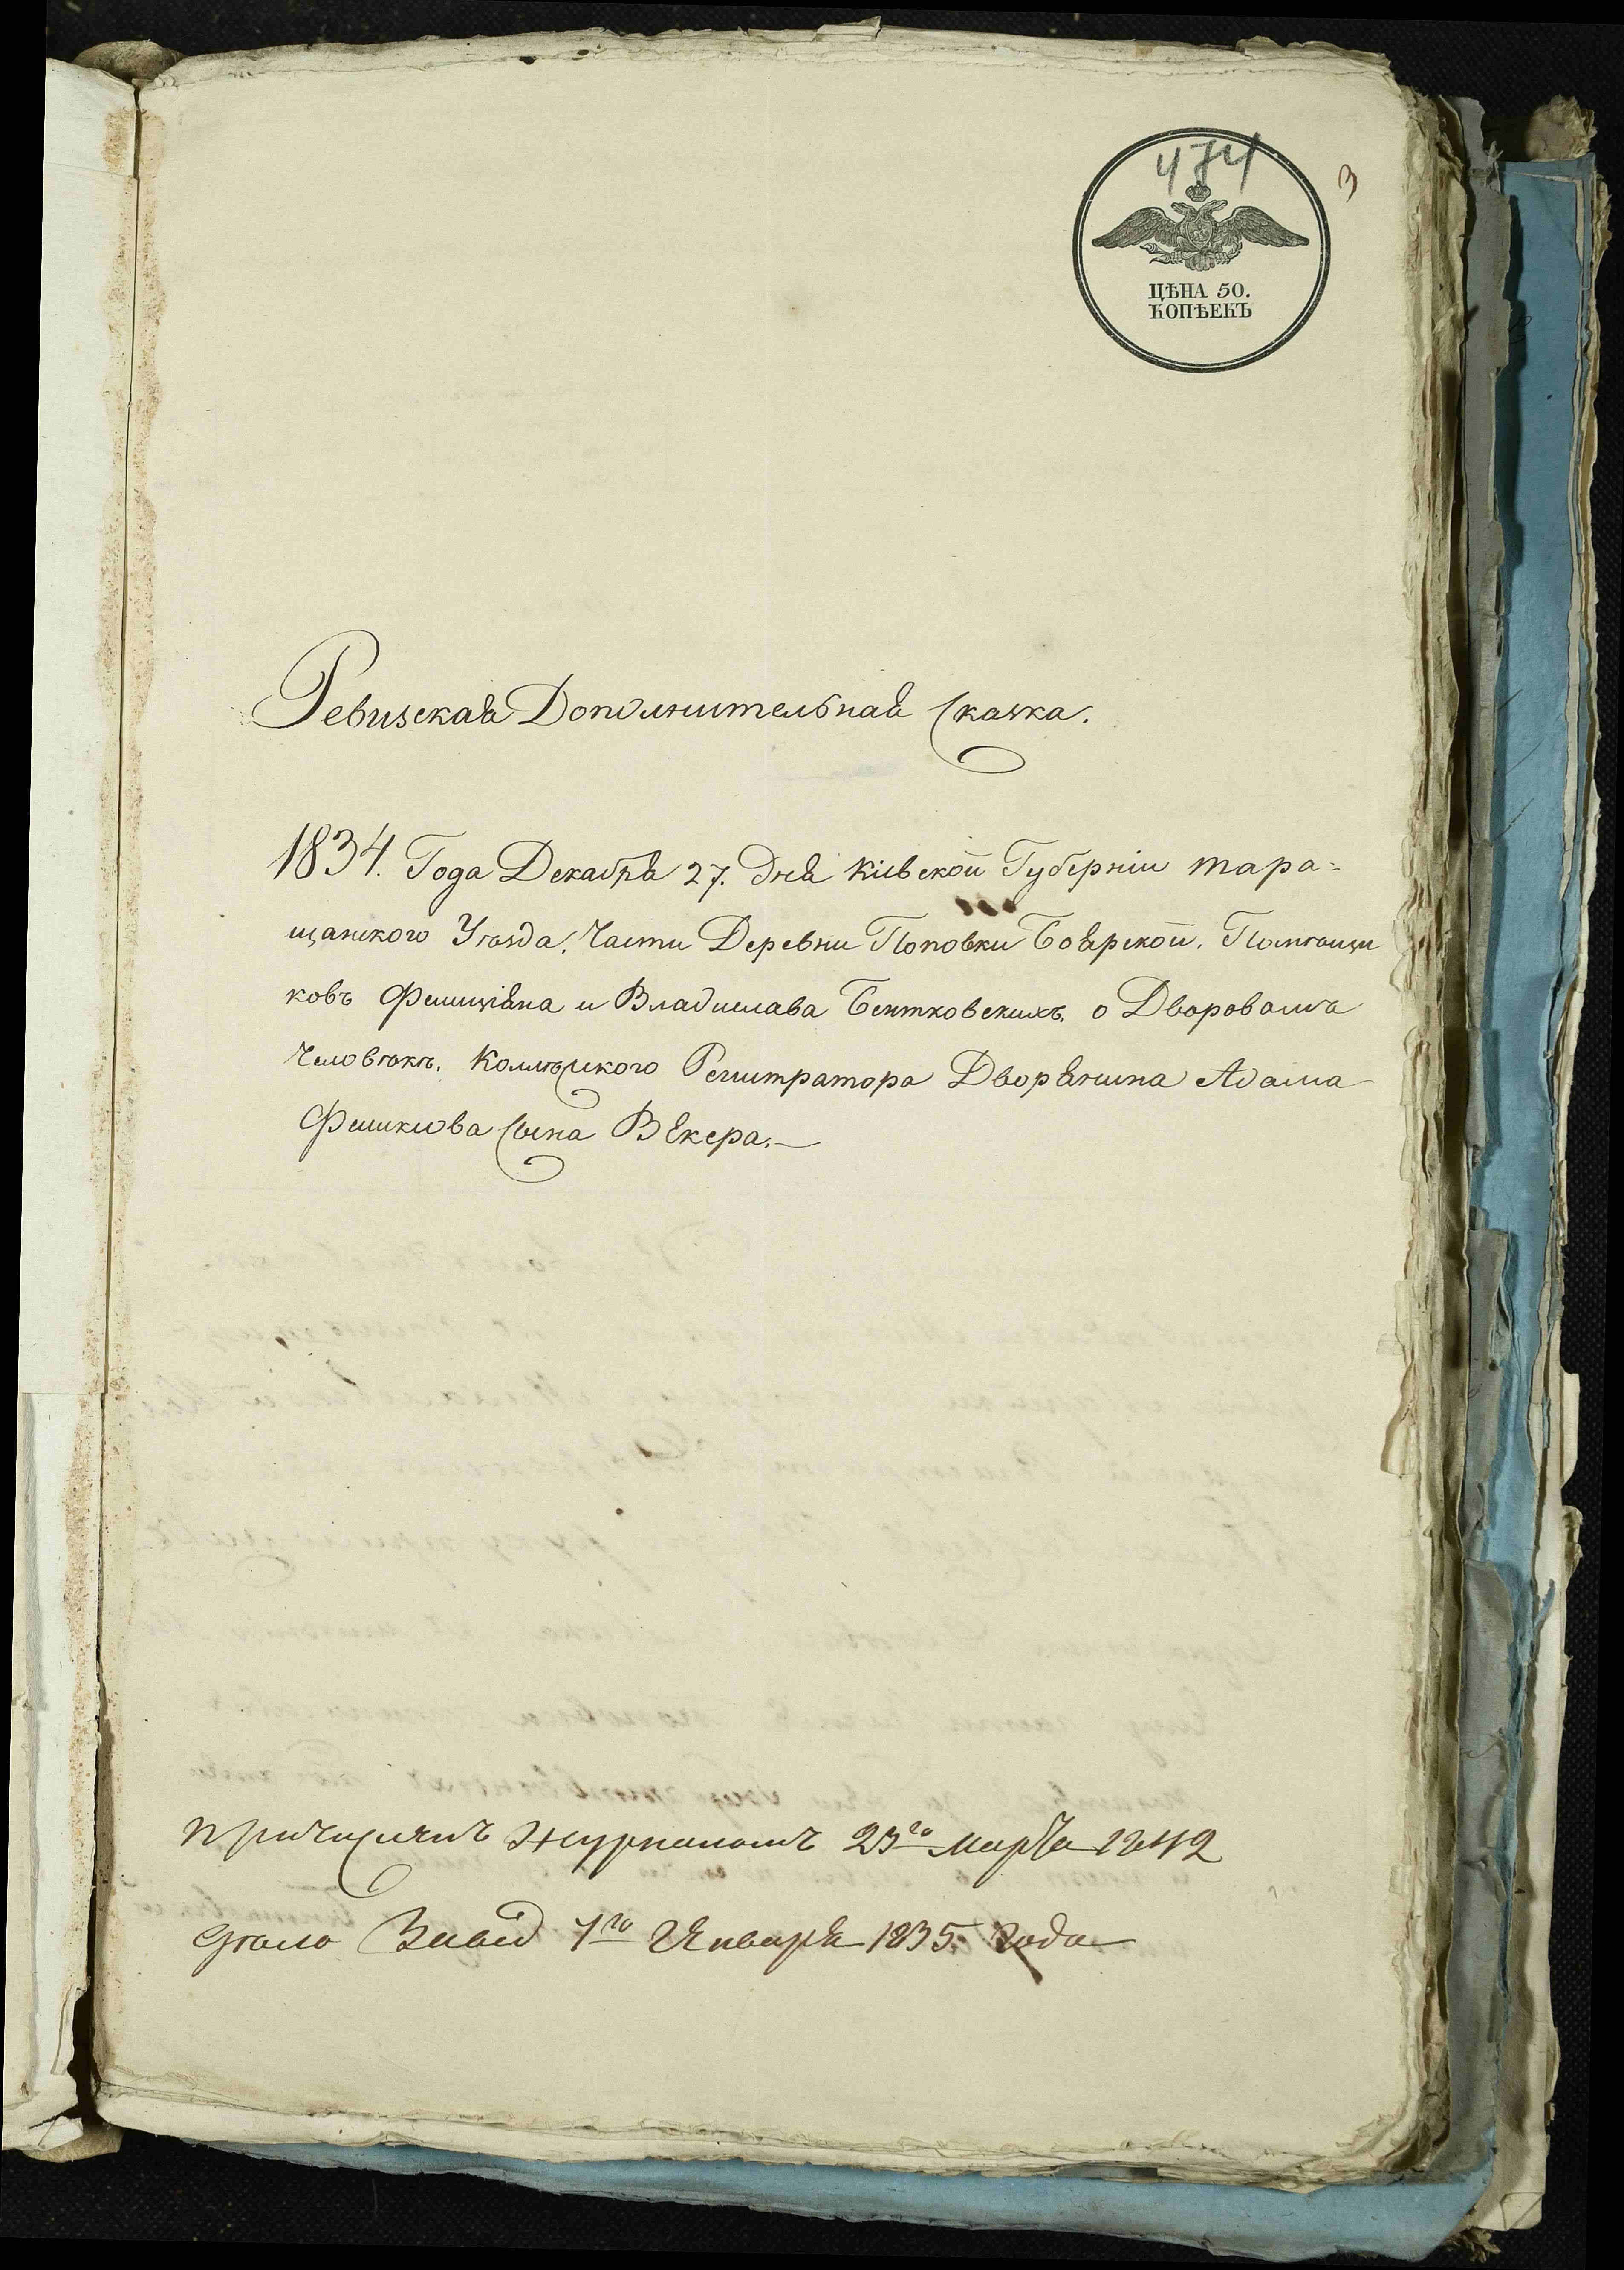 474
3
ЦѢНА 50.
КОПѢЕКЪ
Ревизская Дополнительная Сказка.
1834. Года Декабря 27. Дня Кіевской Губерніи тара=
щанского Уѣзда. Части Деревни Поповки Боярской. Помѣщи
ковъ Фелиціяна и Владислава Бентковскихъ. о Дворовомъ
Человѣкѣ. Коллежского Регистратора Дворянина Адама
сына Векера.—
Причисленъ Журналомъ 23го марта 1842
1го Января 1835. Года